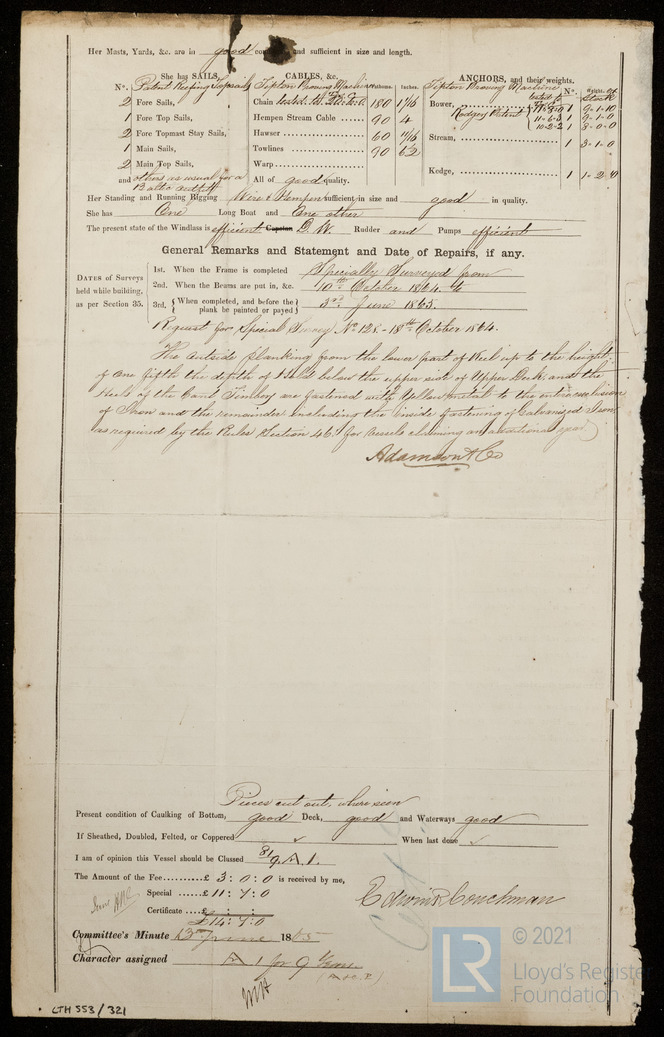 Her Masts, Yards, &c. are in good condition and sufficient in size and length.
She has SAILS, CABLES, &c. ANCHORS, and their weights.
N°. Patent Reefing Topsails Tipton Proving Machine Fathoms. Inches. Tipton Proving Machine N°. Weight. ex Stock
2 Fore Sails, Chain tested to 180 1 7/16 Bower, tested to 1 9-1-10
1 Fore Top Sails, Hempen Stream Cable 90 4 Rodgers Patent 11-6-3 1 9-1-0
2 Fore Topmast Stay Sails, Hawser 60 10-2-2 1 8-0-0
1 Main Sails, Towlines 90 6 1/2 Stream, 1 3-1-0
2 Main Top Sails, Warp
and others as usual for a Baltic outfit All of good quality. Kedge, 1 1-2-0
Her Standing and Running Rigging Wire & Hempen sufficient in size and good in quality.
She has One Long Boat and One other
The present state of the Windlass is efficient Capstan D. W. Rudder and Pumps efficient
General Remarks and Statement and Date of Repairs, if any.
DATES of Surveys held while building, as per Section 35.
1st. When the Frame is completed Specially Surveyed from
2nd. When the Beams are put in, &c. 10th October 1864 to
3rd. When completed, and before the plank be painted or payed 3rd June 1865.
Request for Special Survey No 128 - 18th October 1864.
The outside planking from the lower part of Keel up to the height
of one fifth the depth of Hold below the upper side of Upper Deck, and the
Heels of the Cant Timbers are fastened with Yellow metal to the entire exclusion
of Iron and the remainder including the inside fastening of Galvanized Iron
as required by the Rules Section 46. for vessels claiming an additional year
Adamson & Co
Pieces cut out, where seen
Present condition of Caulking of Bottom, good Deck, good and Waterways good
If Sheathed, Doubled, Felted, or Coppered ✓ When last done ✓
I am of opinion this Vessel should be Classed 9. A. 1.
The Amount of the Fee.........£ 3 : 0 : 0 is received by me,
Special ......£ 11 : 7 : 0
Edwin R Couchman
Certificate ...£ : :
£14 : 7 : 0
Committee's Minute 13th June 1865
Character assigned A 1 for 9 Years
LTH 553 / 321
LR
© 2021
Lloyd's Register
Foundation